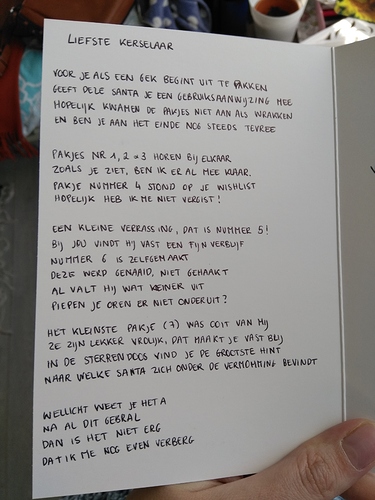 LIEFSTE KERSELAAR
VOOR JE ALS EEN GEK BEGINT UIT TE PAKKEN
GEEFT DELE SANTA JE EEN GEBRUIKSAANWIJZING MEE
HOPELIJK KWAMEN DE PAKJES NIET AAN ALS WRAKKEN
EN BEN JE AAN HET EINDE NOG STEEDS TEVREE
PAKJES NR 1, 2 & 3 HOREN BIJ ELKAAR
ZOALS JE ZIET, BEN IK ER AL MEE KLAAR.
PAKJE NUMMER 4 STOND OP JE WISHLIST
HOPELIJK HEB IK ME NIET VERGIST!
EEN KLEINE VERRASSING, DAT IS NUMMER 5!
BIJ JOU VINDT HIJ VAST EEN FIJN VERBLIJF
NUMMER 6 IS ZELFGEMAAKT
DEZE WERD GENAAID, NIET GEHAAKT
AL VALT HIJ WAT KLEINER UIT
PIEPEN JE OREN ER NIET ONDERUIT?
HET KLEINSTE PAKJE (7) WAS OOIT VAN MIJ
ZE ZIJN LEKKER VROLIJK, DAT MAAKT JE VAST BLIJ
IN DE STERRENDOOS VIND JE DE GROOTSTE HINT
NAAR WELKE SANTA ZICH ONDER DE VERMOMMING BEVINDT
WELLICHT WEET JE HET A
NA AL DIT GEBRAL
DAN IS HET NIET ERG
DAT IK ME NOG EVEN VERBERG